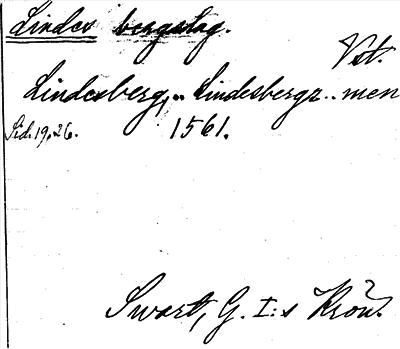 Lindes bergslag.
Vstm.
Lindesberg, .. Lindesbergz .. men
Sid. 19, 26. 1561.
Swart, G. I:s Krön.